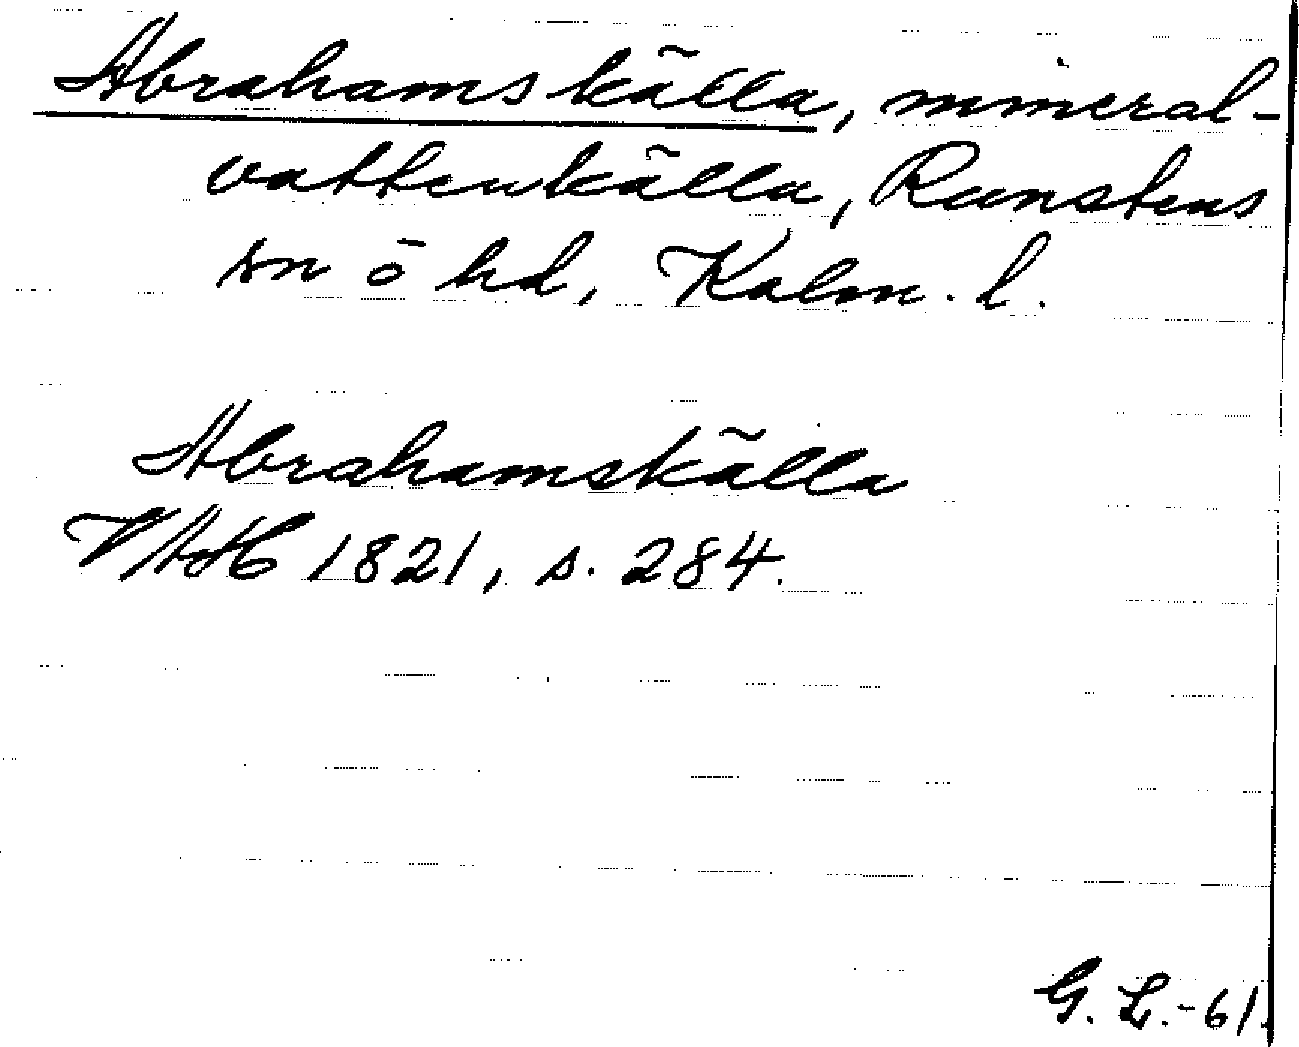 Abrahamskälla, mineral-
vattenkälla, Runstens
sn ö hd, Kalm. l.
Abrahamskälla
VAH 1821, s. 284.
G. L.-61.